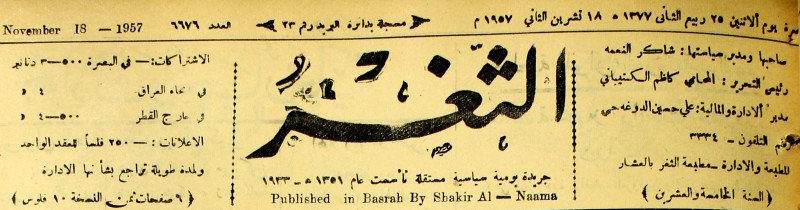 ـصرة يوم الاثنين ٢٥ ربيع الثاني ١٣٧٧ ه ١٨ تشرين الثاني ١٩٥٧ م
مسجلة بدائرة البريد رقم ٢٣
العدد ٦٦٧٦
November 18 - 1957
صاحبها ومدير سياستها : شاكر النعمه
رئيس التحرير : المحامي كاظم الكتيباني
مدير الادارة والمالية : علي حسين الدوغه جي
رقم التلفون - ٣٣٣٤
المطبعة والادارة - مطبعة الثغر بالعشار
( السنة الخامسة والعشرين )
الثغر
جريدة يومية سياسية مستقلة تأسست عام ١٣٥١ ه - ١٩٣٣
Published in Basrah By Shakir Al - Naama
الاشتراكات :- في البصرة ٥٠٠-٣ دنانير
في انحاء العراق ٤ د
في خارج القطر ٥٠٠-٤ د
الاعلانات :- ٢٥٠ فلساً للعقد الواحد
ولمدة طويلة تراجع بشأنها الادارة
( ٦ صفحات ثمن النسخة ١٠ فلوس )